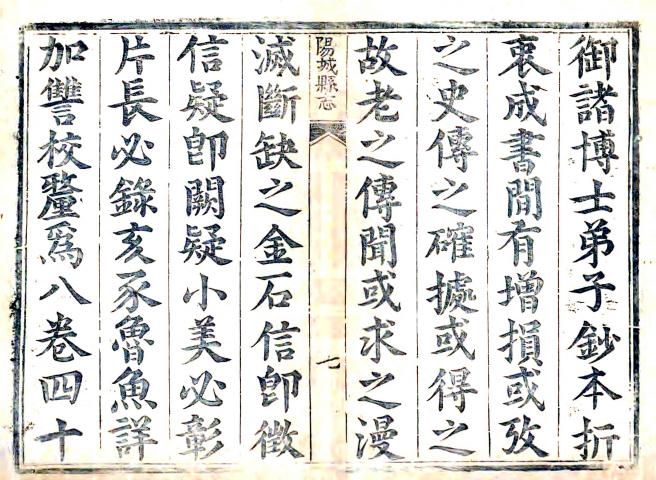 御諸博士弟子鈔本折
衷成書間有增損或攷
之史傳之確據或得之
故老之傳聞或求之漫
陽城縣志
七
滅斷缺之金石信卽徵
信疑卽闕疑小美必彰
片長必錄亥豕魯魚詳
加讐校釐爲八卷四十